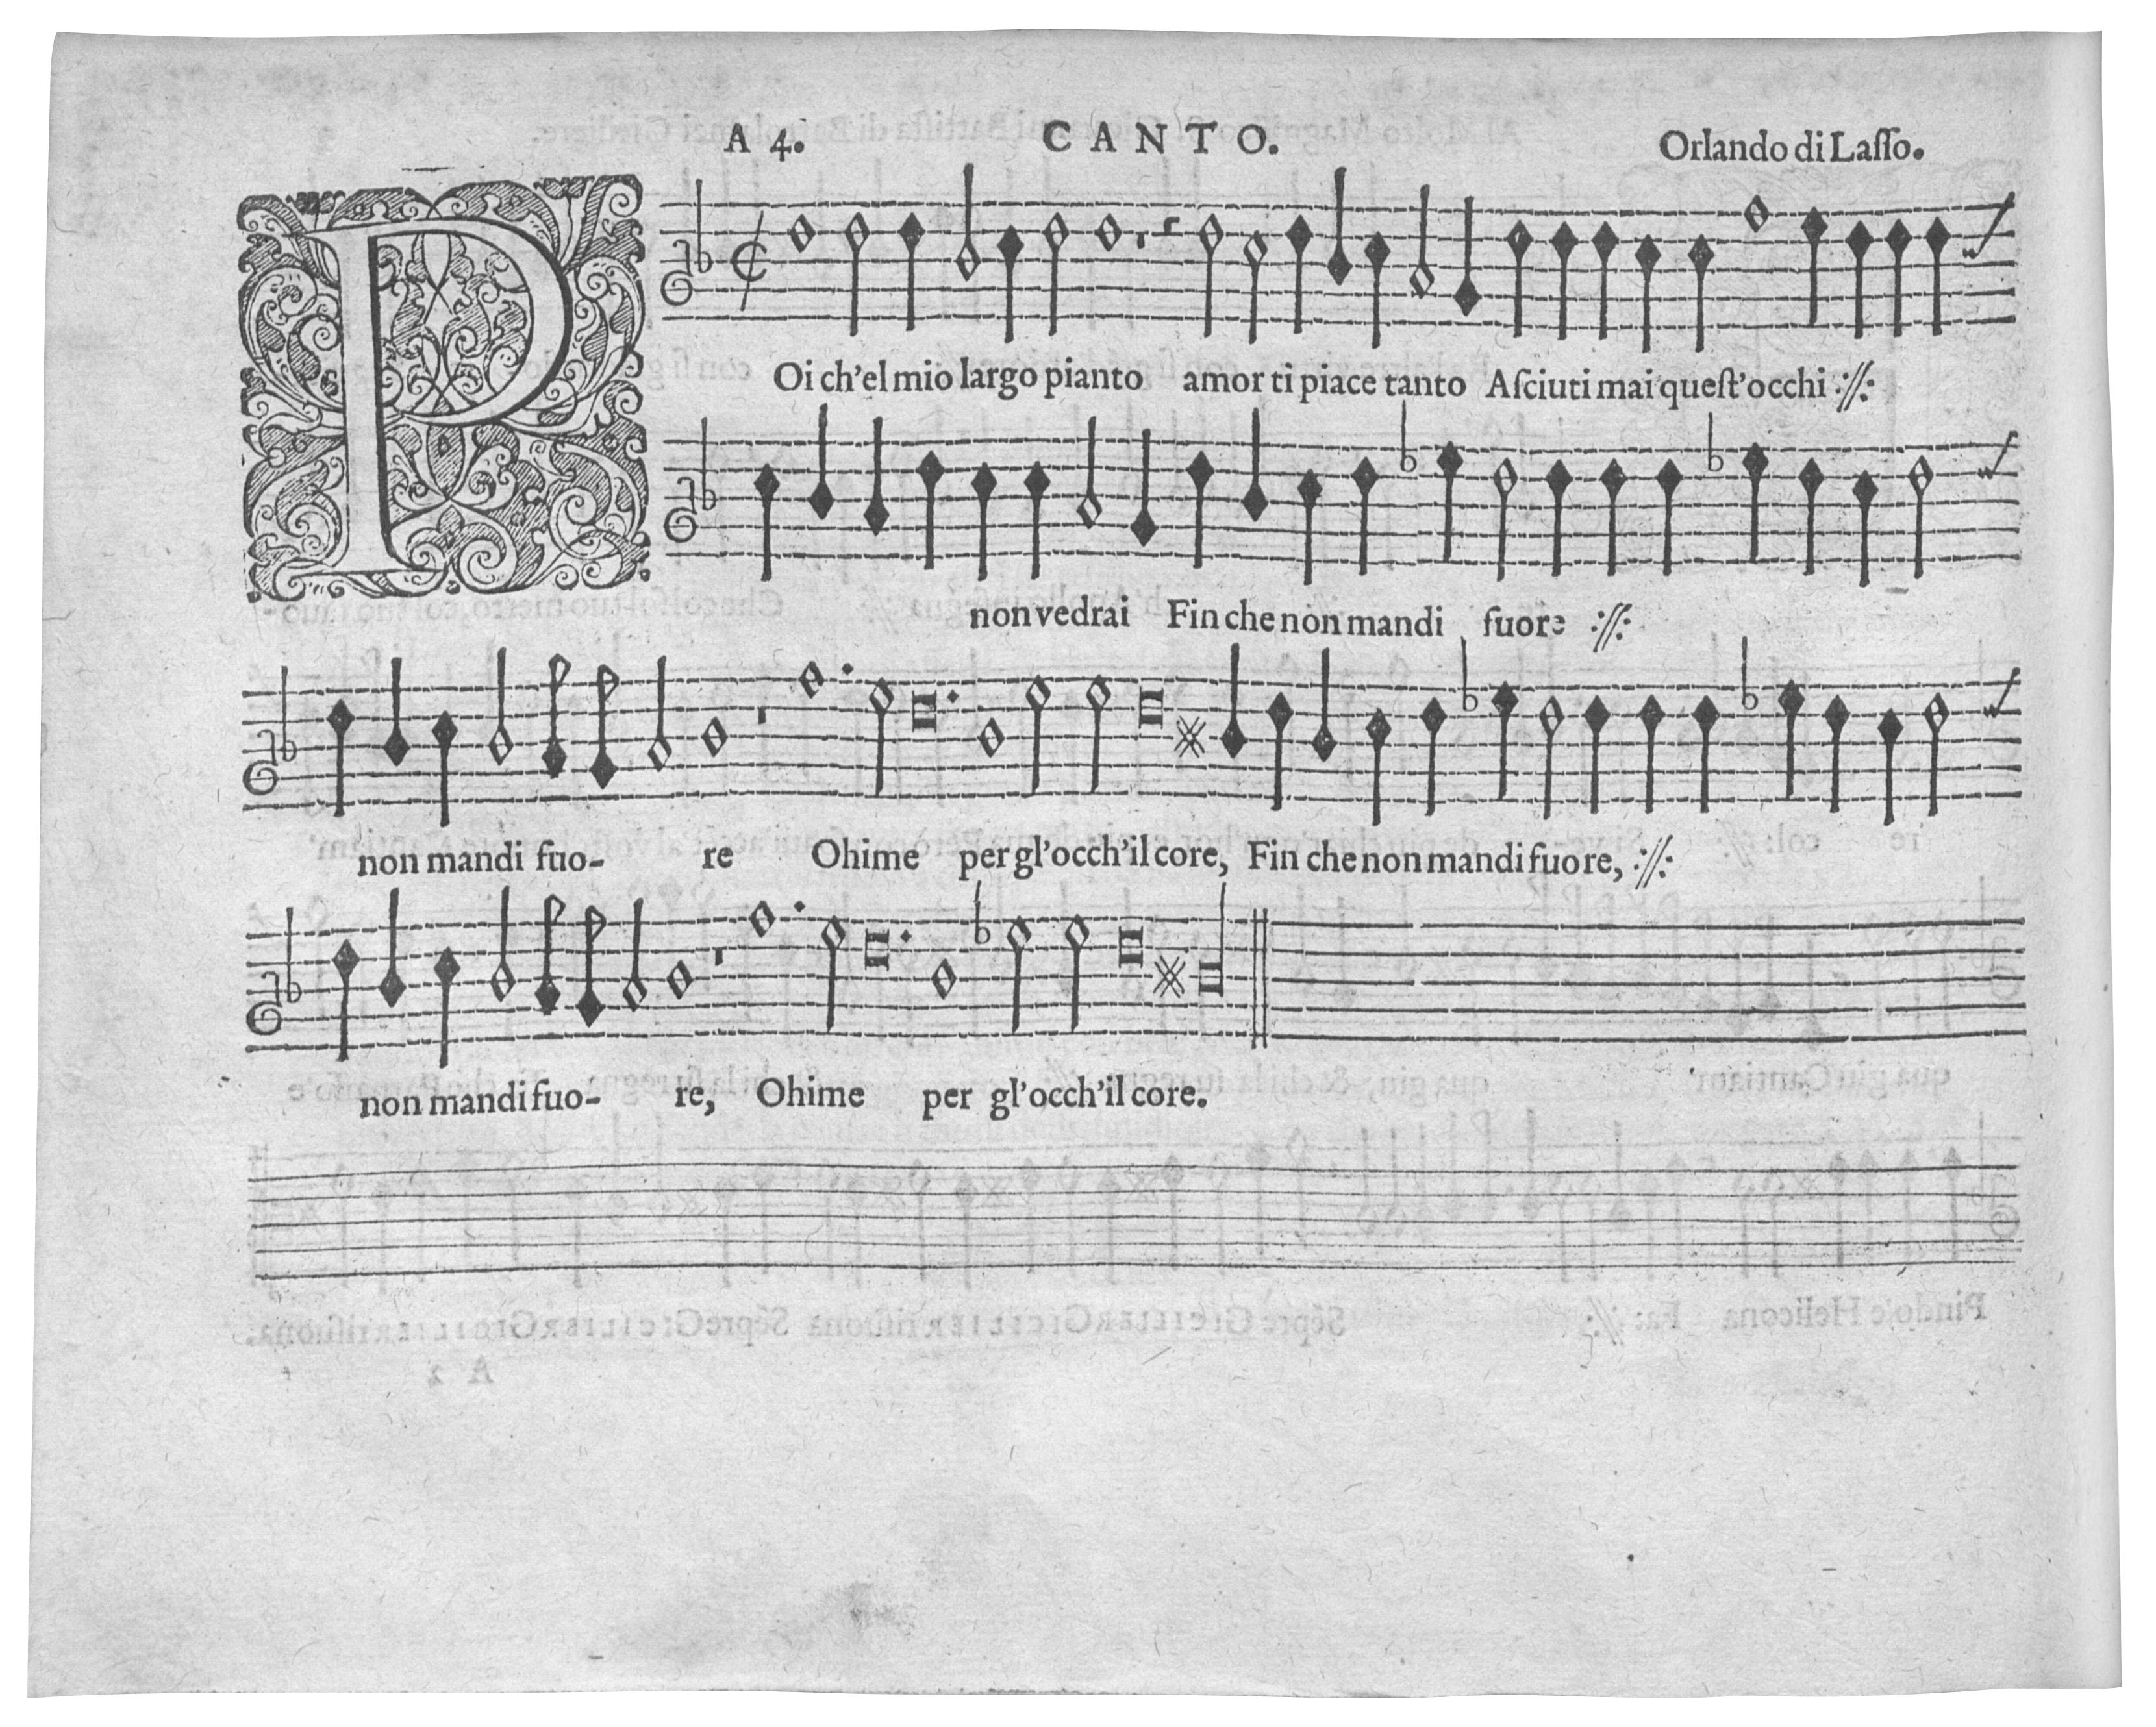 A 4. CANTO. Orlando di Laſſo.
POi ch'el mio largo pianto amor ti piace tanto Aſciuti mai queſt'occhi :||:
non vedrai Fin che non mandi fuore :||:
non mandi fuo- re Ohime per gl'occh'il core, Fin che non mandi fuore, :||:
non mandi fuo- re, Ohime per gl'occh'il core.